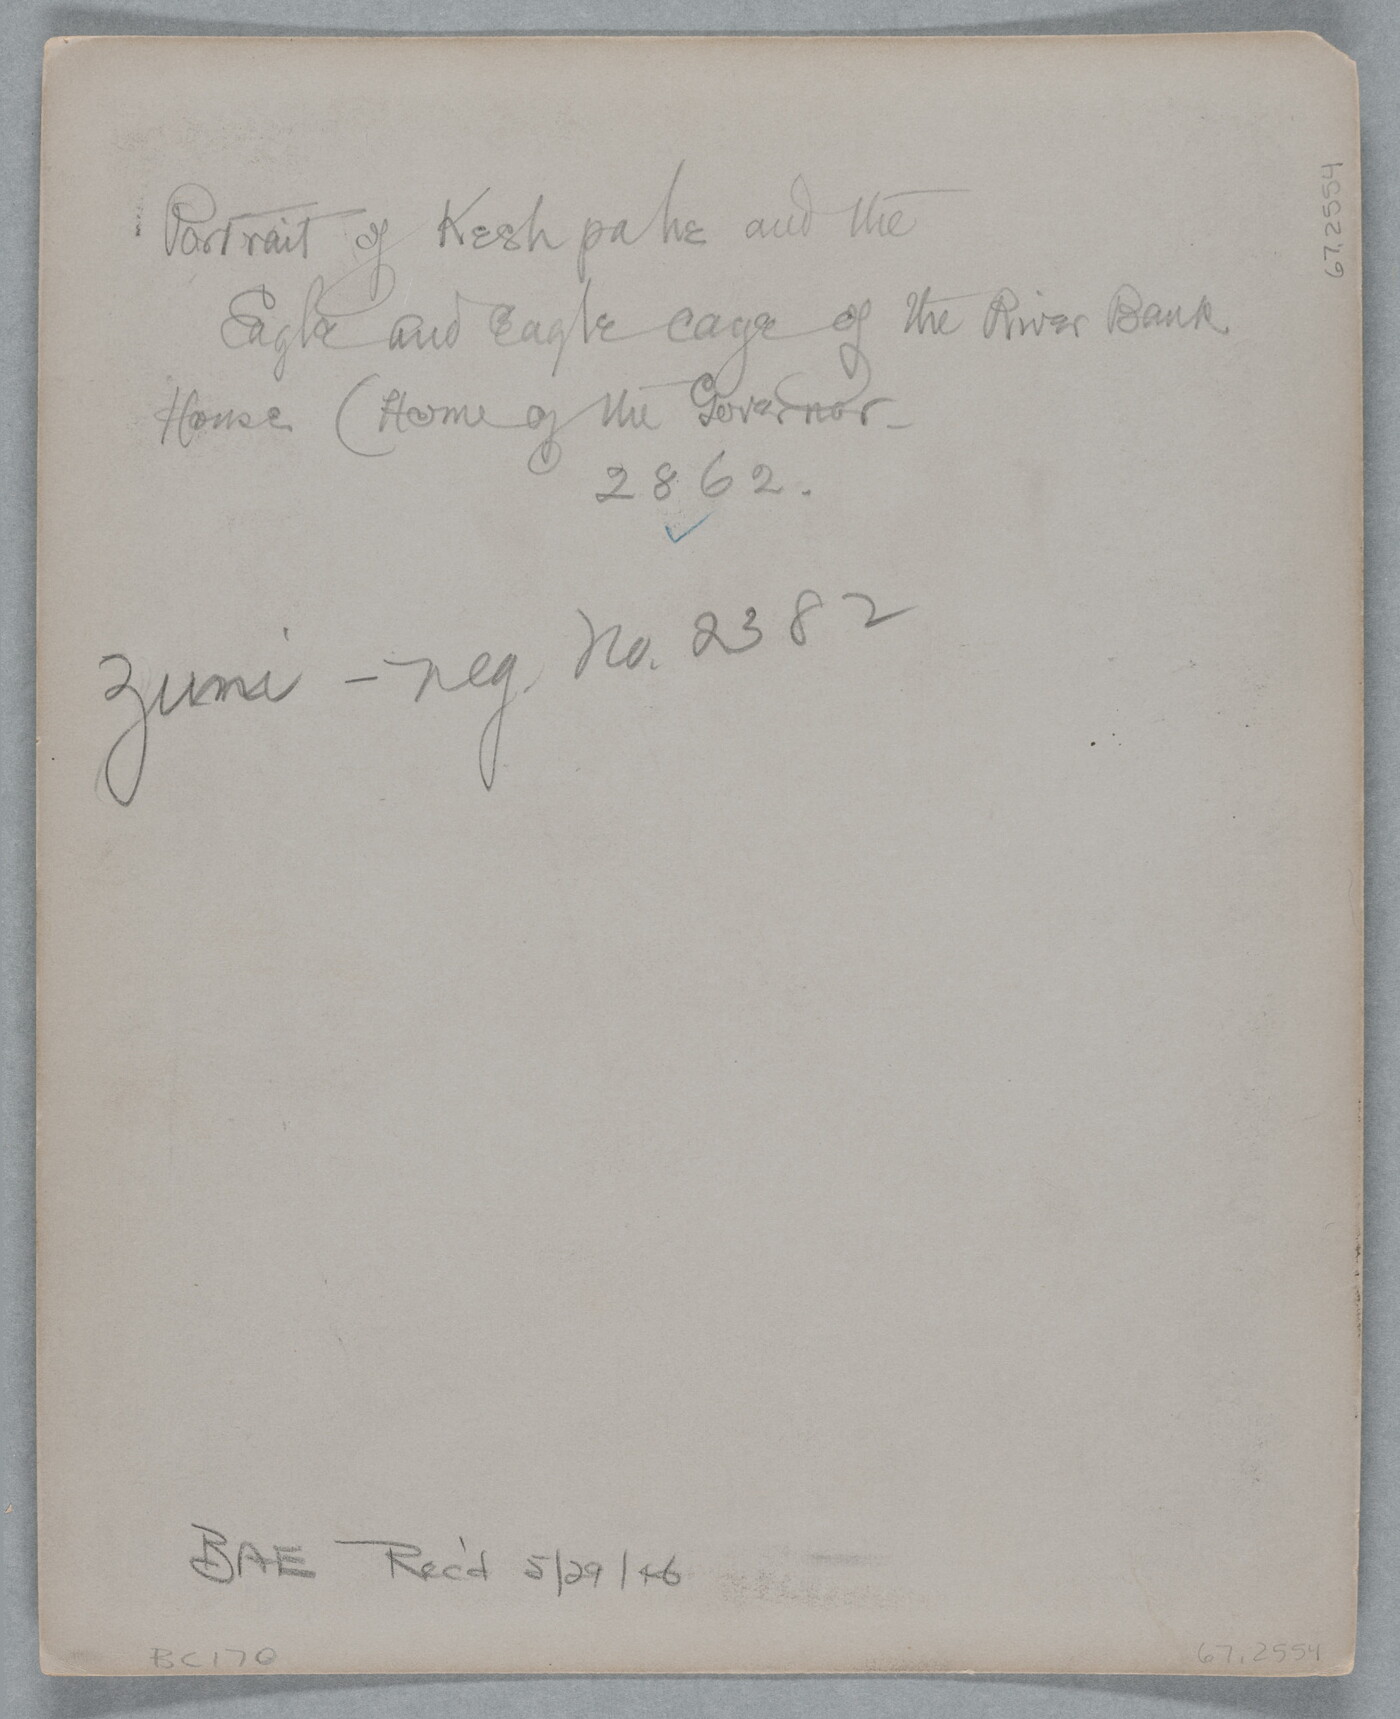 67.2554
Portrait of Keshpahe and the
Eagle and Eagle cage of the River Bank
House (Home of the Governor–
2862.
Zuni – neg. No. 2382
BAE Rec'd 5/29/46
BC170
67.2554